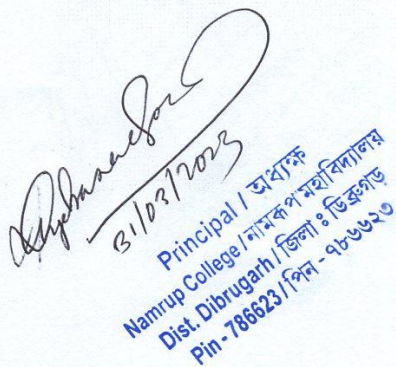 31/03/2023
Principal / অধ্যক্ষ
Namrup College / নামৰূপ মহাবিদ্যালয়
Dist. Dibrugarh / জিলা ঃ ডিব্ৰুগড়
Pin - 786623 / পিন - ৭৮৬৬২৩